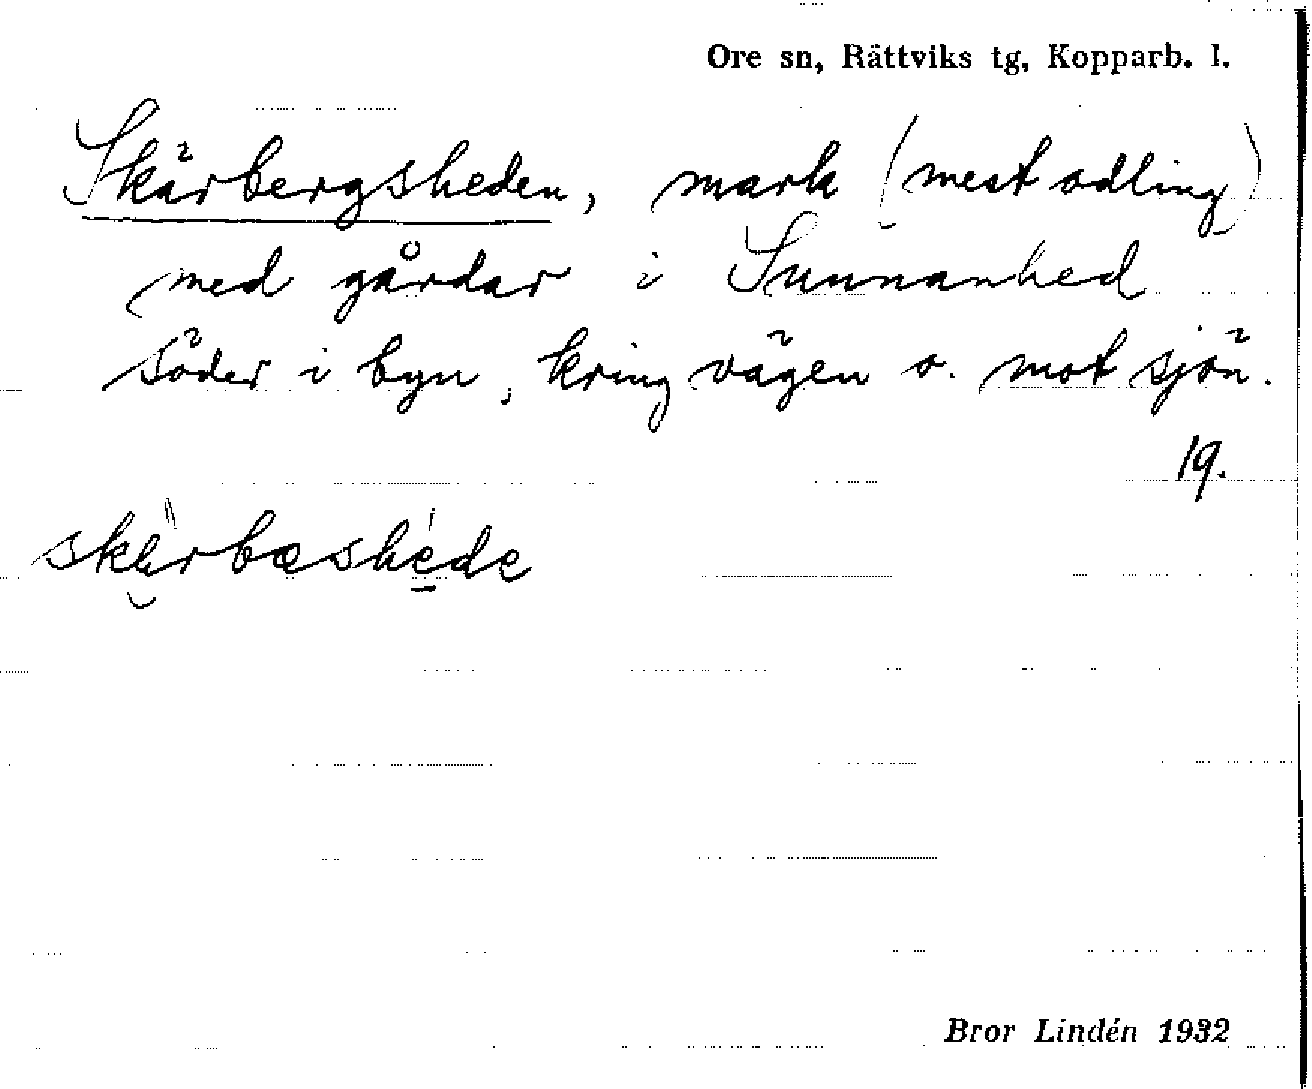 Ore sn, Rättviks tg, Kopparb. l.
Skärbergsheden, mark (mest odling)
med gårdar i Sunnanhed
söder i byn, kring vägen o. mot sjön.
19.
skärbæshede
Bror Lindén 1932